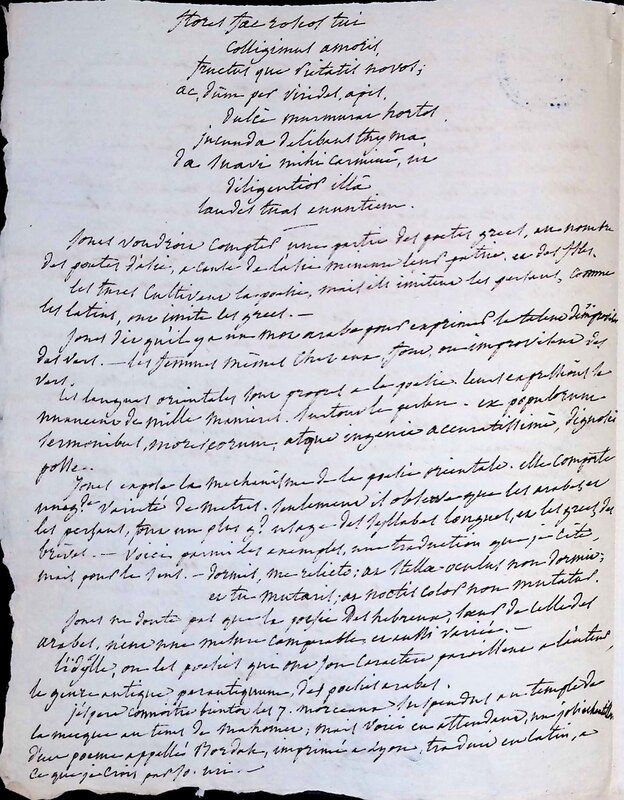 flores fac roseos tui
colligimus amoris,
fructus que pietatis novos;
ac, dum per virides apis,
dulcè murmurat hortos
jucunda delibans thyma,
da suavi mihi carmine, ut
diligentior illâ
laudes tuas enuntiem.
Jones voudroit compter une partie des poetes grecs, au nombre
des poetes d'asie, a cause de l'asie mineure leur patrie, et des isles.
les turcs cultivent la poesie, mais ils imitent les persans, comme
les latins, ont imité les grecs. —
Jones dit qu'il y a un mot arabe pour exprimer le talent d'improviser
des vers. — les femmes mêmes chez eux font, ou improvisent des
vers.
les langues orientales sont propres a la poesie. leurs expressions se
nuancent de mille manieres. surtout le — ex populorum
sermonibus, mores eorum, atque ingenia accuratissimè, dignosci
posse. —
Jones expose la mechanisme de la poesie orientale. elle comporte
une gde varieté de metres. seulement il observe que les arabes et
les persans, font un plus gd usage des syllabes longues, et les grecs des
breves. — Voici parmi les exemples, une traduction que je cite
mais pour le sens. — dormis, me relicto; at stellæ oculus non dormit;
et tu mutaris; at noctis color non mutatur.
Jones ne doute pas que la poesie des hebreux, soeur de celle des
arabes, n'eut une mesure comparable, et aussi variée. —
l'idylle, ou les poesies que ont son caractere paroissent a l'auteur,
le genre antique par antiquum, des poesies arabes.
J'espere connoitre bientot les 7. morceaux suspendus au temple de
la mecque au tems de mahomet; mais voici en attendant, une jolie
d'un poeme appellé Bordah, imprimé a Lyon, traduit en latin, a
ce que je crois par